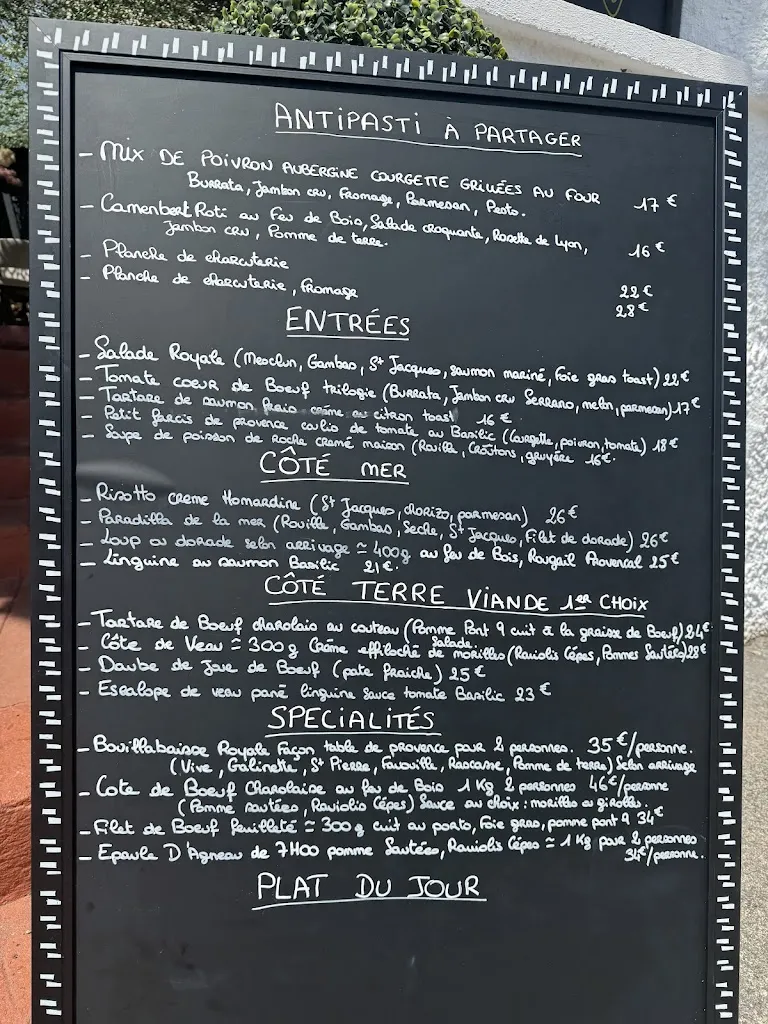 ANTIPASTI À PARTAGER
- MIX DE POIVRON AUBERGINE COURGETTE GRILLÉES AU FOUR
Burrata, Jambon cru, Fromage, Parmesan, Pesto. 17€
- Camenbert Roti au Feu de Bois, Salade croquante, Rosette de Lyon,
Jambon cru, Pomme de terre. 16€
- Planche de charcuterie 22€
- Planche de charcuterie, fromage 28€
ENTRÉES
- Salade Royale (Mesclun, Gambas, St Jacques, saumon mariné, foie gras toast) 22€
- Tomate coeur de Boeuf trilogie (Burrata, Jambon cru Serrano, melon, parmesan) 17€
- Tartare de saumon frais crème au citron toast 16€
- Petit farcis de provence coulis de tomate au Basilic (Courgette, poivron, tomate) 18€
- Soupe de poisson de Roche cramé maison (Rouille, Croûtons, gruyère 16€.
CÔTÉ MER
- Risotto creme Homardine (St Jacques, chorizo, parmesan) 26€
- Paradilla de la mer (Rouille, Gambas, Seche, St Jacques, Filet de dorade) 26€
- Loup ou dorade selon arrivage ≃ 400g au feu de Bois, Rougail Provencal 25€
- Linguine au saumon Basilic 21€.
CÔTÉ TERRE VIANDE 1ER CHOIX
- Tartare de Boeuf charolais au couteau (Pomme Pont 9 cuit à la graisse de Boeuf) 24€
Salade.
- Côte de Veau ≃ 300g Crème effiloché de morilles (Raviolis Cépes, Pommes Sautées) 28€
- Daube de Joue de Boeuf (pate fraiche) 25€
- Escalope de veau pané linguine sauce tomate Basilic 23€
SPECIALITÉS
- Bouillabaisse Royale Façon table de provence pour 2 personnes. 35€/personne.
(Vive, Galinette, St Pierre, Favouille, Rascasse, Pomme de terre) Selon arrivage
- Cote de Boeuf Charolaise au feu de Bois 1 Kg 2 personnes 46€/personne
(Pomme sautées, Raviolis Cépes) Sauce au choix : morilles ou girolles.
- Filet de Boeuf feuilleté ≃ 300g cuit au porto, Foie gras, pomme pont 9 34€
- Epaule D'Agneau de 7H00 pomme Sautées, Raviolis Cépes ≃ 1 Kg pour 2 personnes
34€/personne.
PLAT DU JOUR